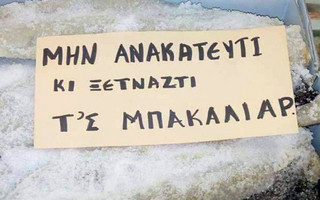 ΜΗΝ ΑΝΑΚΑΤΕΥΤΙ
ΚΙ ΞΕΤΝΑΖΤΙ
Τ'Σ ΜΠΑΚΑΛΙΑΡ.